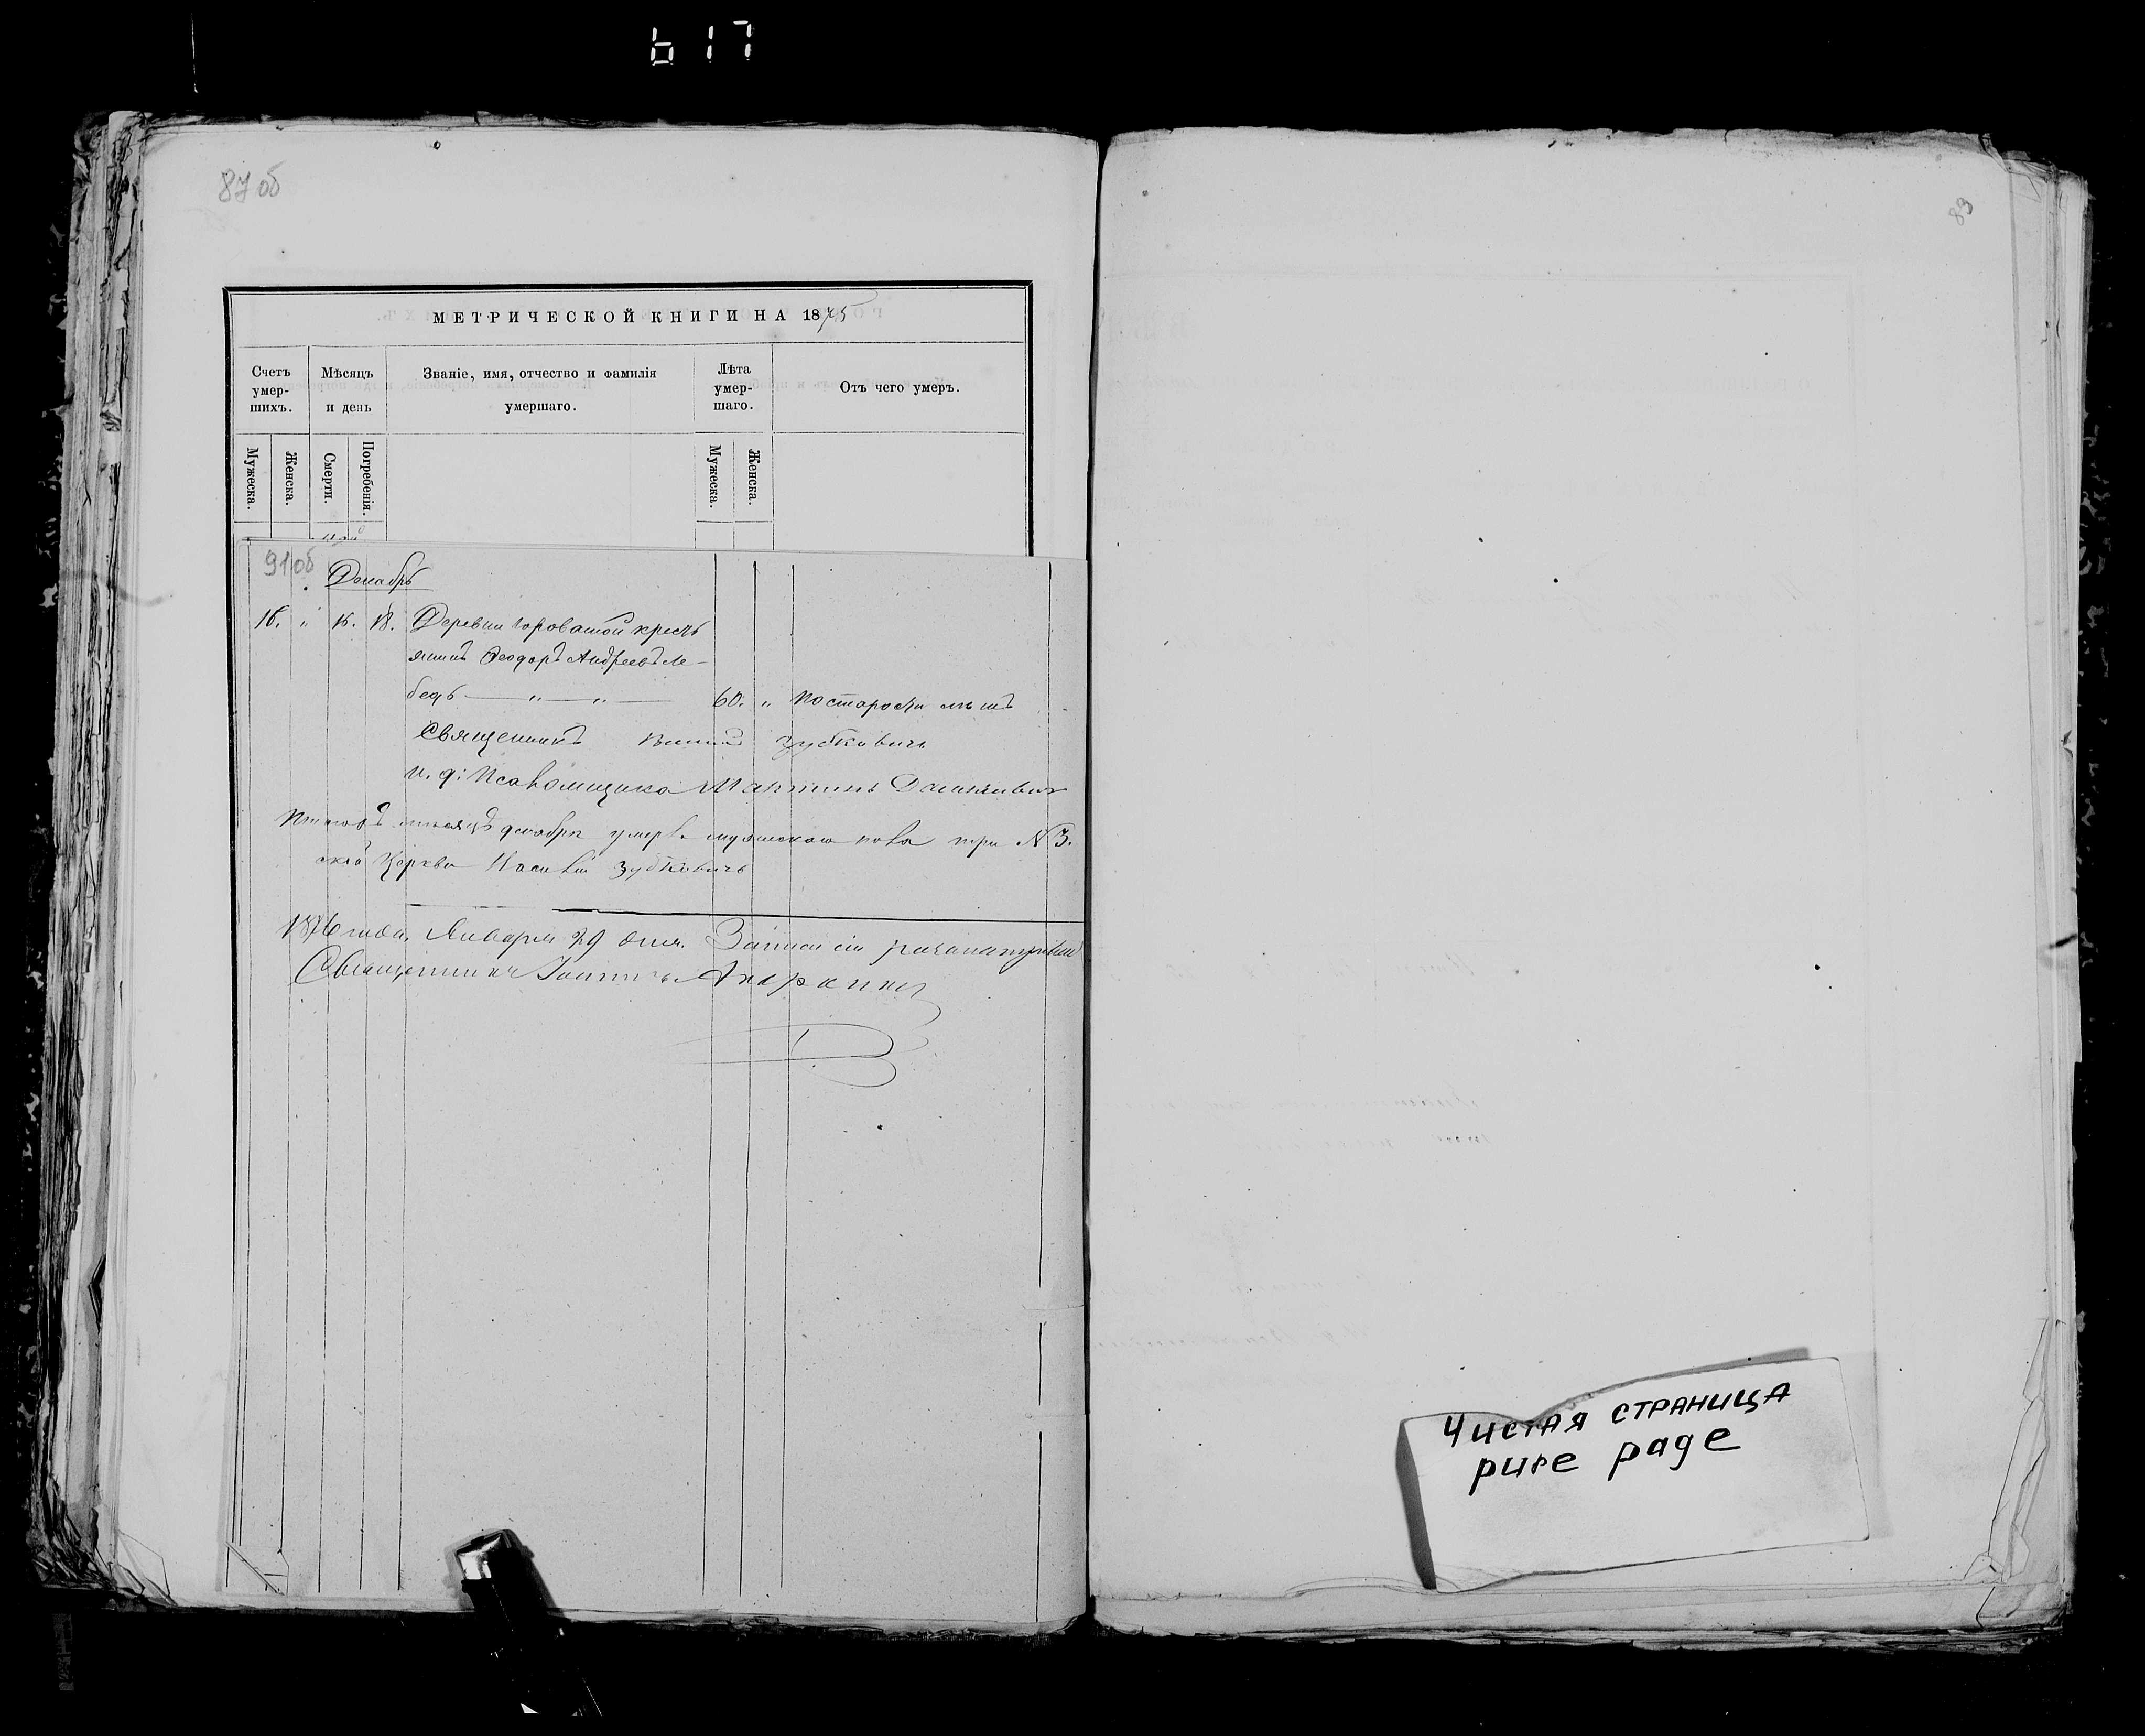 617
87 об
МЕТРИЧЕСКОЙ КНИГИ НА 1875
Счетъ умер-шихъ.
Мѣсяцъ и день
Званіе, имя, отчество и фамилія умершаго.
Лѣта умер-шаго.
Отъ чего умеръ.
Мужеска.
Женска.
Смерти.
Погребенія.
Мужеска.
Женска.
91 об
Декабрь
16. " 16. 18. Деревни кресть
янинъ Ѳеодоръ Андреевъ Ле-
бедь — " — " — 60. "
Священникъ Зубковичъ
и. д: Псаломщика
декабрѣ мужескаго пола три № 3.
Церкви Зубковичъ
1876 года, Января 29 дня. Записи сіи
Священникъ
89
Чистая страница
pure page